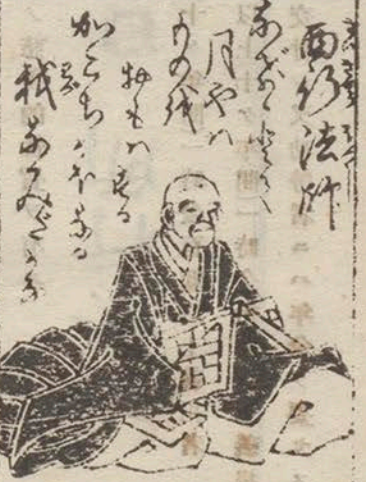 西行法師
なげけとて
月やハ
ものを
おもハする
かこちがほなる
我なみだかな